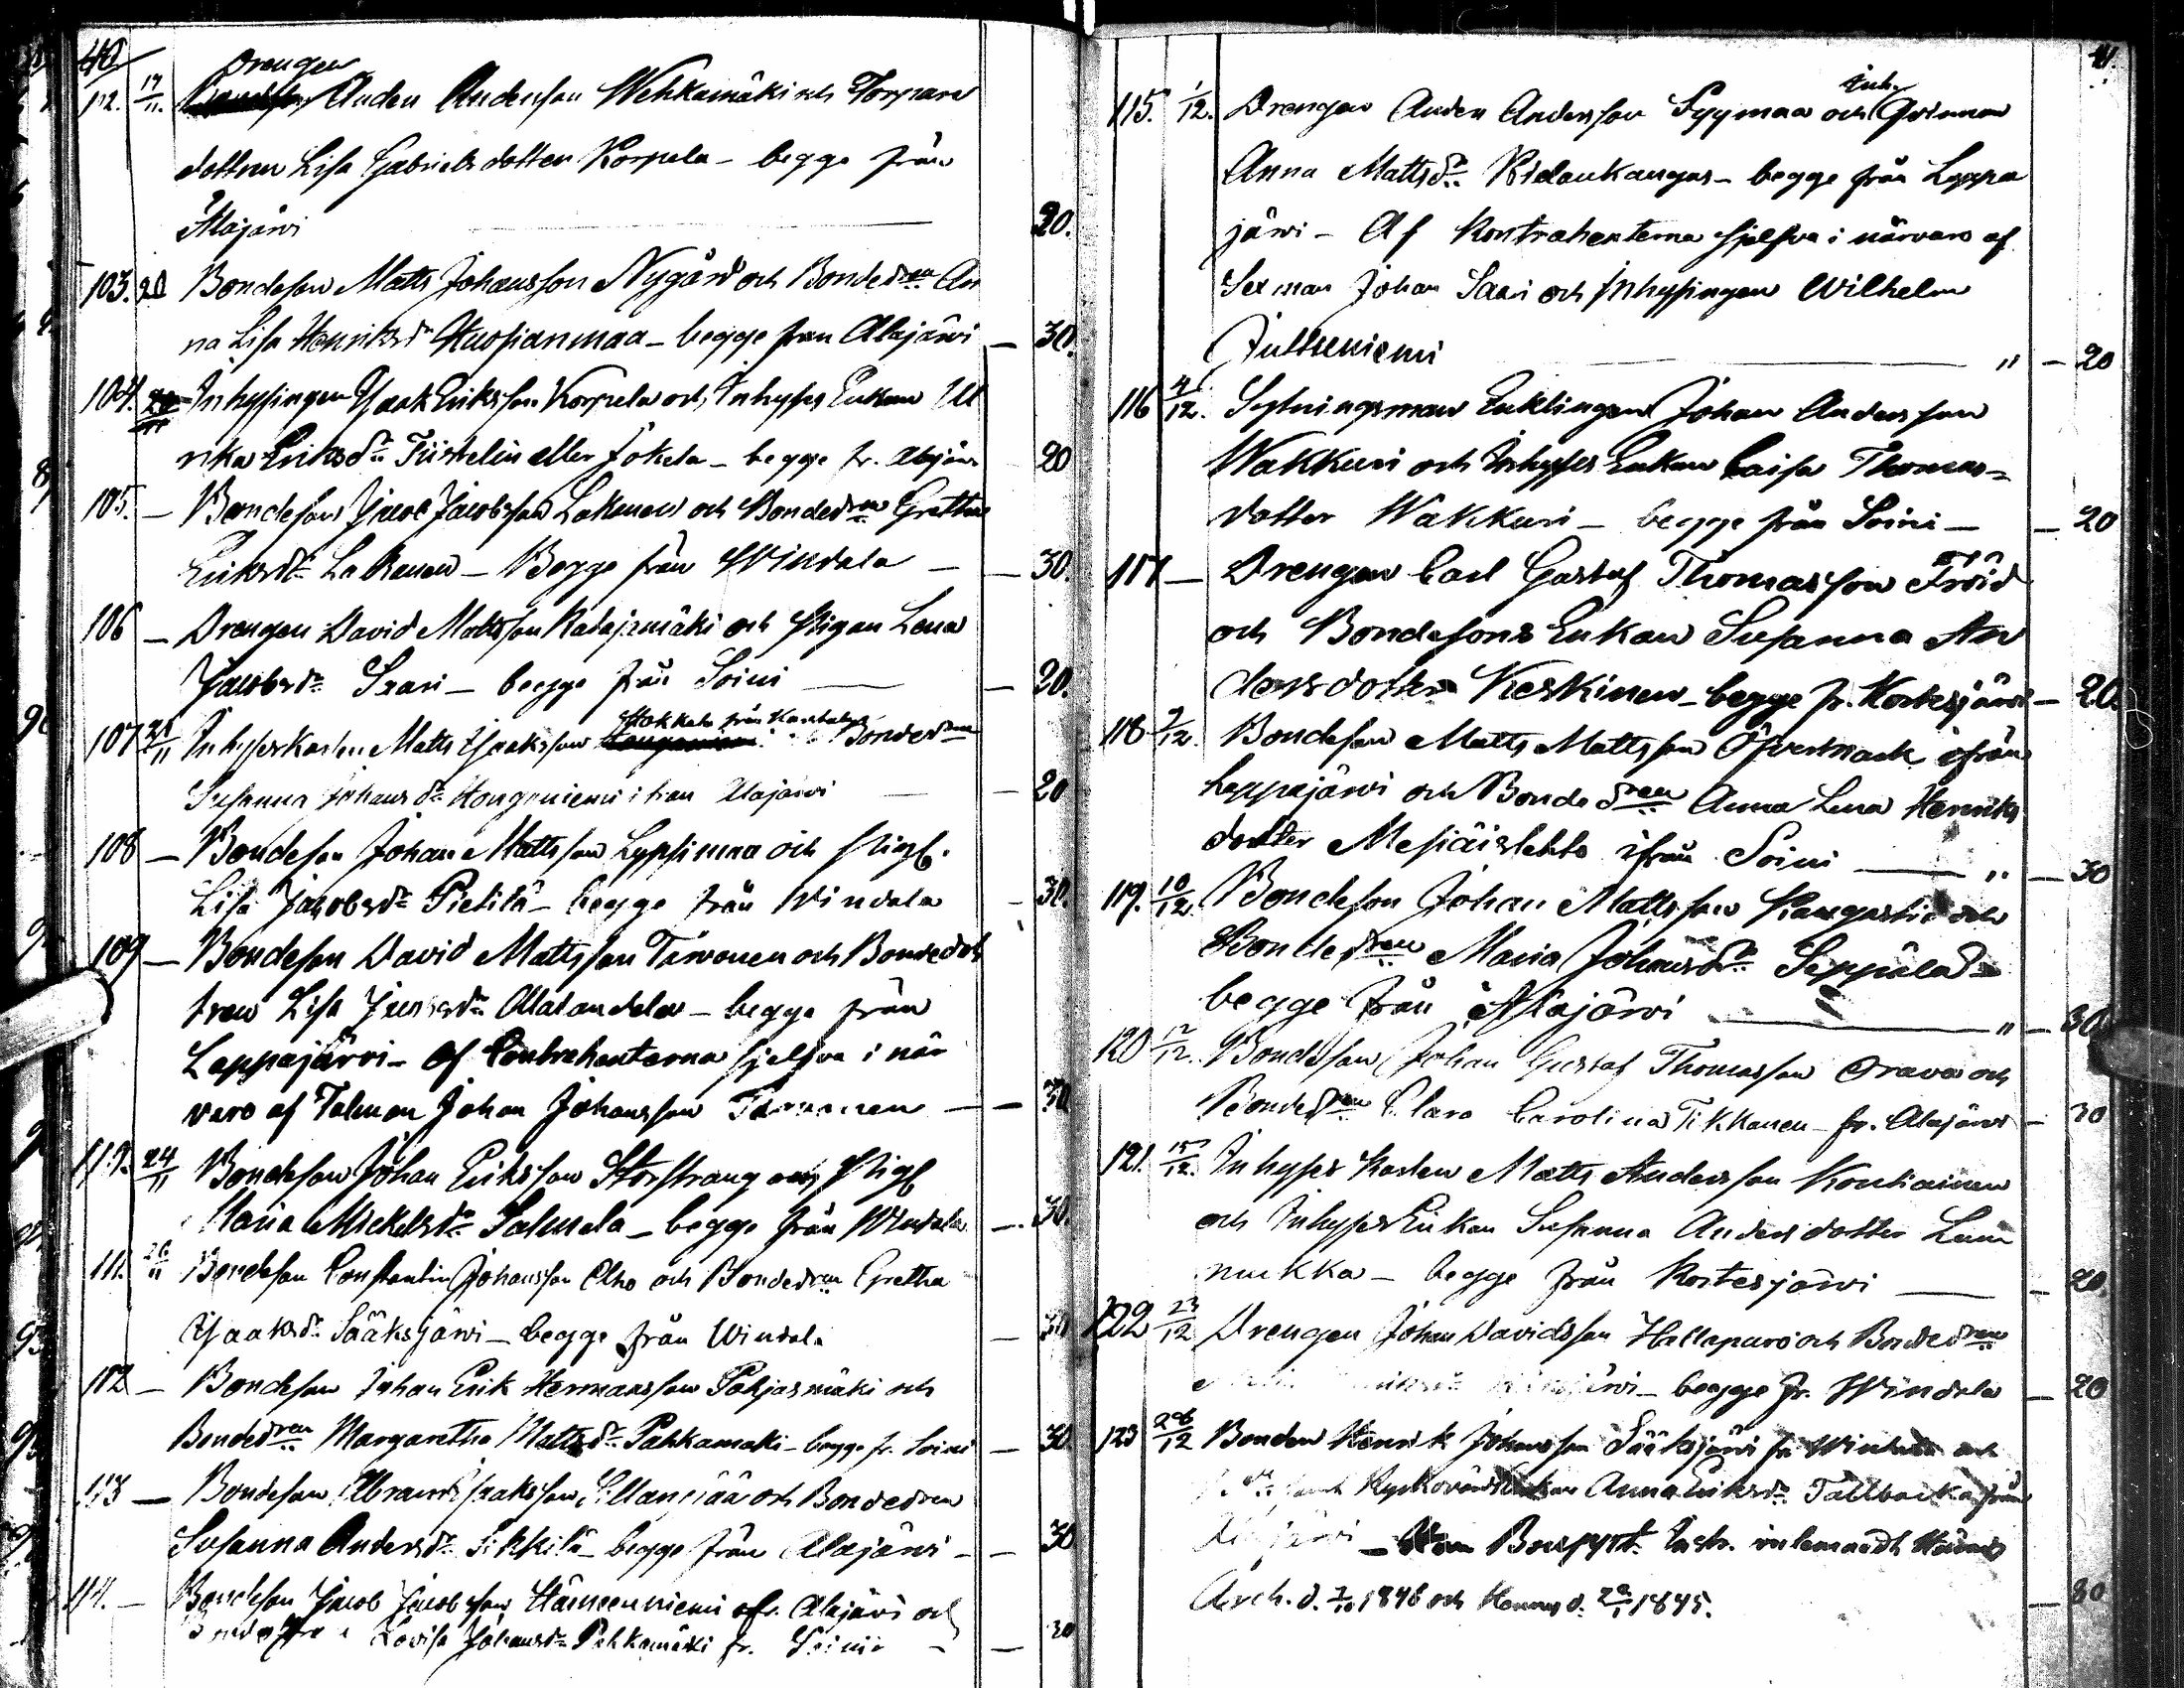 40
Drengen
102. 17/11. Anders Andersson Wehkamäki och Torpare
dottren Lisa Gabrielsdotter Korpela - begge från
Alajärvi 20.
103. 20 Bondeson Matts Johansson Nygård och Bondedren An
na Lisa Henriksdr Kuosianmaa - begge från Alajärvi - 30.
104. Inhysingen Isaak Eriksson Korpela och Inhyses Enkan Ul
rika Eriksdr Tiistelin eller Jokela - begge fr. Alajärvi 20
105. - Bondeson Jacob Jacobsson Lakanen och Bondedren Gretha
Eriksdr Lakanen - Begge från Windala - 30.
106 - Drengen David Mattsson Katajamäki och Pigan Lena
Jacobsdr Saari - begge från Soini - 20.
107 21/11 Inhyses Karlen Matts Isaksson Bondedren
Susanna Johansdr Kangoniemi ifrån Alajärvi - 20
108 - Bondeson Johan Mattsson Lypsinmaa och Pig.
Lisa Jacobsdr Pietilä - begge från Windala - 30.
109 - Bondeson David Mattsson Tarvonen och Bondedot
tren Lisa Alatandela - begge från
Lappajärvi - Af Contrahenterna sjelfva i när
varo af Tolman Johan Johansson Tarvonen - 30
110. 24/11 Bondeson Johan Eriksson Storstrang och Pig
Maria Mickelsdr Salmela - begge från Windala - 30.
111. 26/11 Bondeson Constantin Johansson Aho och Bondedren Gretha
Isaaksdr Sääksjärvi - begge från Windala - 30
112 - Bondeson Johan Erik Hermansson Pohjasmäki och
Bondedren Margaretha Mattsdr Pahkamäki - begge fr. Soini - 30.
113 - Bondeson Abram Isaksson Sillanpää och Bondedren
Susanna Andersdr Sikkilä - begge från Alajärvi - 30
114. - Bondeson Jacob Jacobsson Hämeenniemi fr. Alajärvi och
Lovisa Johansdr Pahkamäki fr. Soini - 30
41.
Inh.
115. 1/12. Drengen Anders Andersson Syymaa och Qvinnan
Anna Mattsdr Kidankangas - begge från Lappa
järvi - Af Kontrahenterna sjelfva i närvaro af
Sexman Johan Saari och Inhysingen Wilhelm
Juttuniemi " - 20
116 4/12. Sytningsman Enklingen Johan Andersson
Wakkuri och Inhyses Enkan Caisa Thomas-
dotter Wakkuri - begge från Soini - 20
117 - Drengen Carl Gustaf Thomasson Fröid
och Bondesons Enkan Susanna An
dersdotter Keskinen - begge fr. Kortesjärvi - 20.
118 9/12. Bondeson Matts Mattsson Öfvermark ifrån
Lappajärvi och Bondedren Anna Lena Henriks
dotter Mesiäislehto ifrån Soini " - 30
119. 10/12. Bondeson Johan Mattsson Kangastie och
Bondedren Maria Johansdr Seppälä -
begge från Alajärvi " - 30
120 12/12. Bondeson Johan Gustaf Thomasson Orava och
Bondedren Clara Carolina Tikkanen - fr. Alajärvi - 30
121. 15/12. Inhyses Karlen Matts Andersson Kontiainen
och Inhyses Enkan Susanna Andersdotter Lum
mukka - begge från Kortesjärvi - 20.
122 23/12 Drengen Johan Davidsson Hallapuro och Bondedren
begge fr. Windala - 20
123 26/12 Bonden Henrik Johansson Sääksjärvi fr. Windala och
Anna Eriksdr Tallbacka från
Alajärvi -
Arch. d. 1846 och 1845. - 30